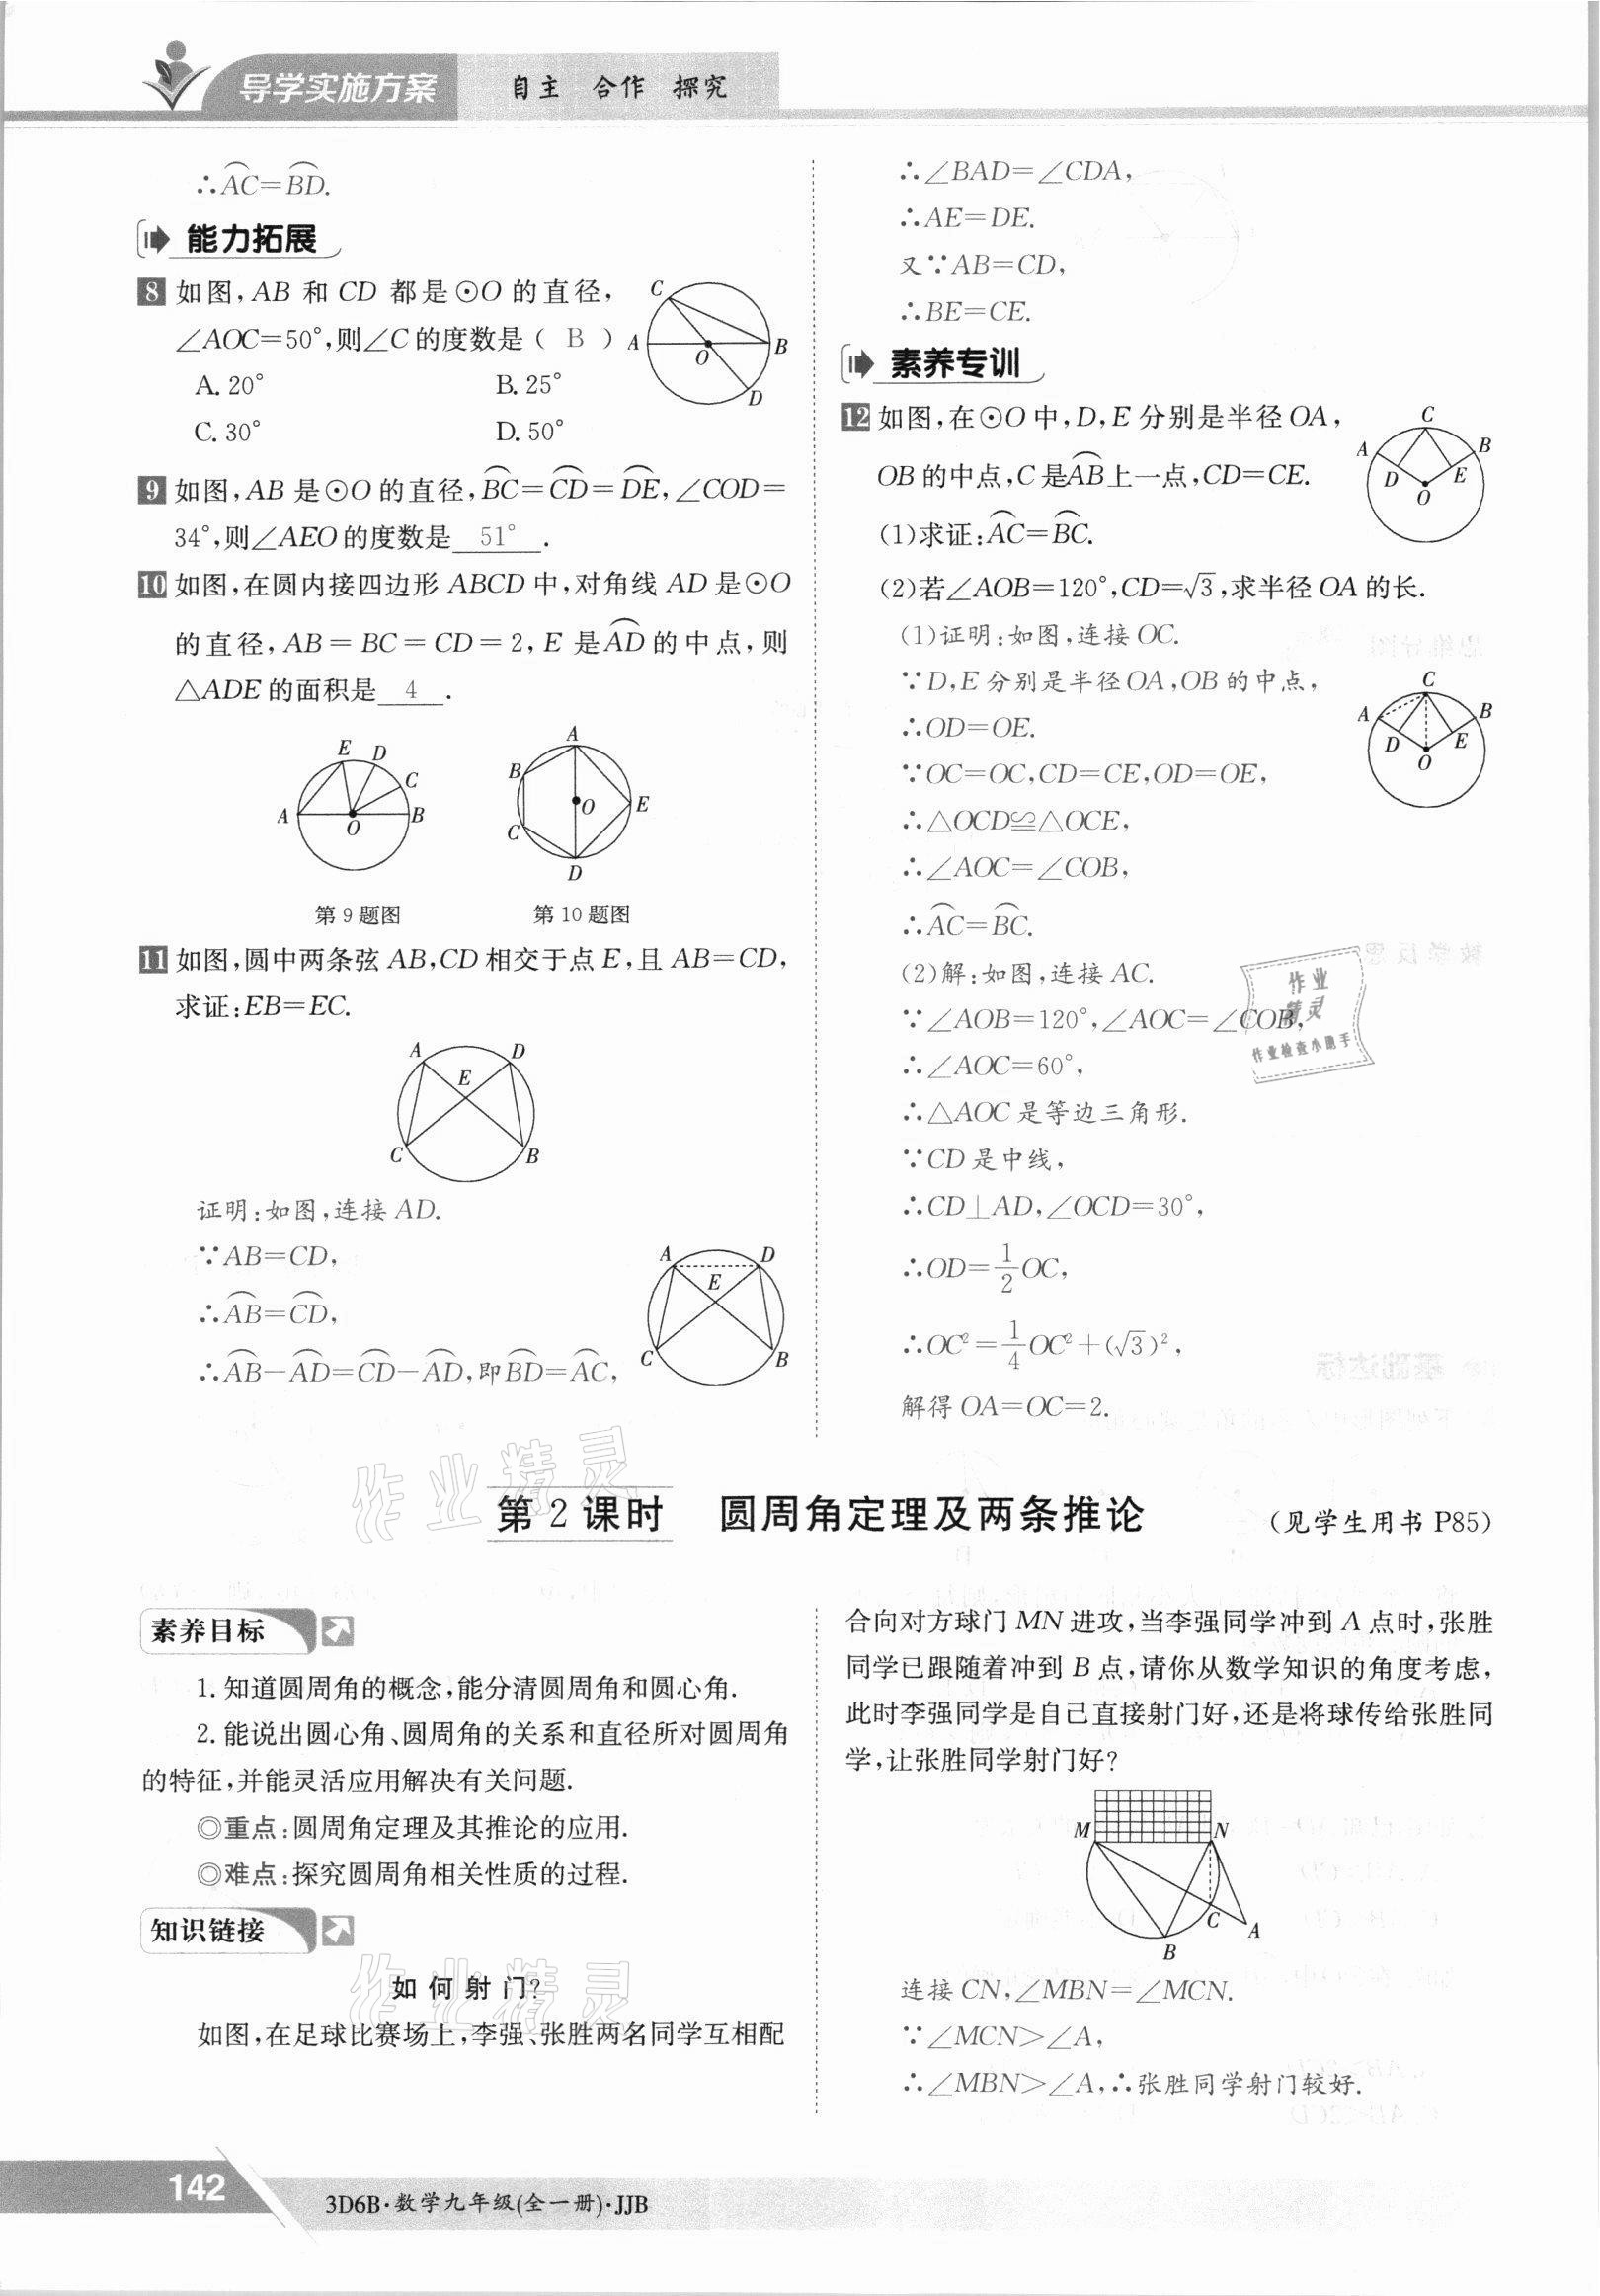 导学实施方案 自主 合作 探究
∴AC=BD.
能力拓展
8 如图,AB 和 CD 都是⊙O 的直径,
∠AOC=50°,则∠C 的度数是( B )
A. 20° B. 25°
C. 30° D. 50°
C
A
O
B
D
9 如图,AB 是⊙O 的直径,BC=CD=DE,∠COD=
34°,则∠AEO 的度数是 51° .
10 如图,在圆内接四边形 ABCD 中,对角线 AD 是⊙O
的直径,AB=BC=CD=2,E 是AD的中点,则
△ADE 的面积是 4 .
E D C
A O B
A
B
O E
C
D
第 9 题图 第 10 题图
11 如图,圆中两条弦 AB,CD 相交于点 E,且 AB=CD,
求证:EB=EC.
A D
E
C B
证明:如图,连接 AD.
∵AB=CD,
∴AB=CD,
∴AB-AD=CD-AD,即BD=AC,
A D
E
C B
∴∠BAD=∠CDA,
∴AE=DE.
又∵AB=CD,
∴BE=CE.
素养专训
12 如图,在⊙O 中,D,E 分别是半径 OA,
OB 的中点,C 是AB上一点,CD=CE.
(1)求证:AC=BC.
(2)若∠AOB=120°,CD=√3,求半径 OA 的长.
C
A B
D E
O
(1)证明:如图,连接 OC.
∵D,E 分别是半径 OA,OB 的中点,
∴OD=OE.
∵OC=OC,CD=CE,OD=OE,
∴△OCD≌△OCE,
∴∠AOC=∠COB,
∴AC=BC.
C
A B
D E
O
(2)解:如图,连接 AC.
∵∠AOB=120°,∠AOC=∠COB,
∴∠AOC=60°,
∴△AOC 是等边三角形.
∵CD 是中线,
∴CD⊥AD,∠OCD=30°,
∴OD=1/2OC,
∴OC²=1/4OC²+(√3)²,
解得 OA=OC=2.
作业
精灵
作业检查小助手
作业精灵
第 2 课时 圆周角定理及两条推论 (见学生用书 P85)
素养目标
1. 知道圆周角的概念,能分清圆周角和圆心角.
2. 能说出圆心角、圆周角的关系和直径所对圆周角
的特征,并能灵活应用解决有关问题.
◎重点:圆周角定理及其推论的应用.
◎难点:探究圆周角相关性质的过程.
知识链接
如何射门?
作业精灵
如图,在足球比赛场上,李强、张胜两名同学互相配
合向对方球门 MN 进攻,当李强同学冲到 A 点时,张胜
同学已跟随着冲到 B 点,请你从数学知识的角度考虑,
此时李强同学是自己直接射门好,还是将球传给张胜同
学,让张胜同学射门好?
M N
C A
B
连接 CN,∠MBN=∠MCN.
∵∠MCN>∠A,
∴∠MBN>∠A,∴张胜同学射门较好.
142
3D6B·数学九年级(全一册)·JJB